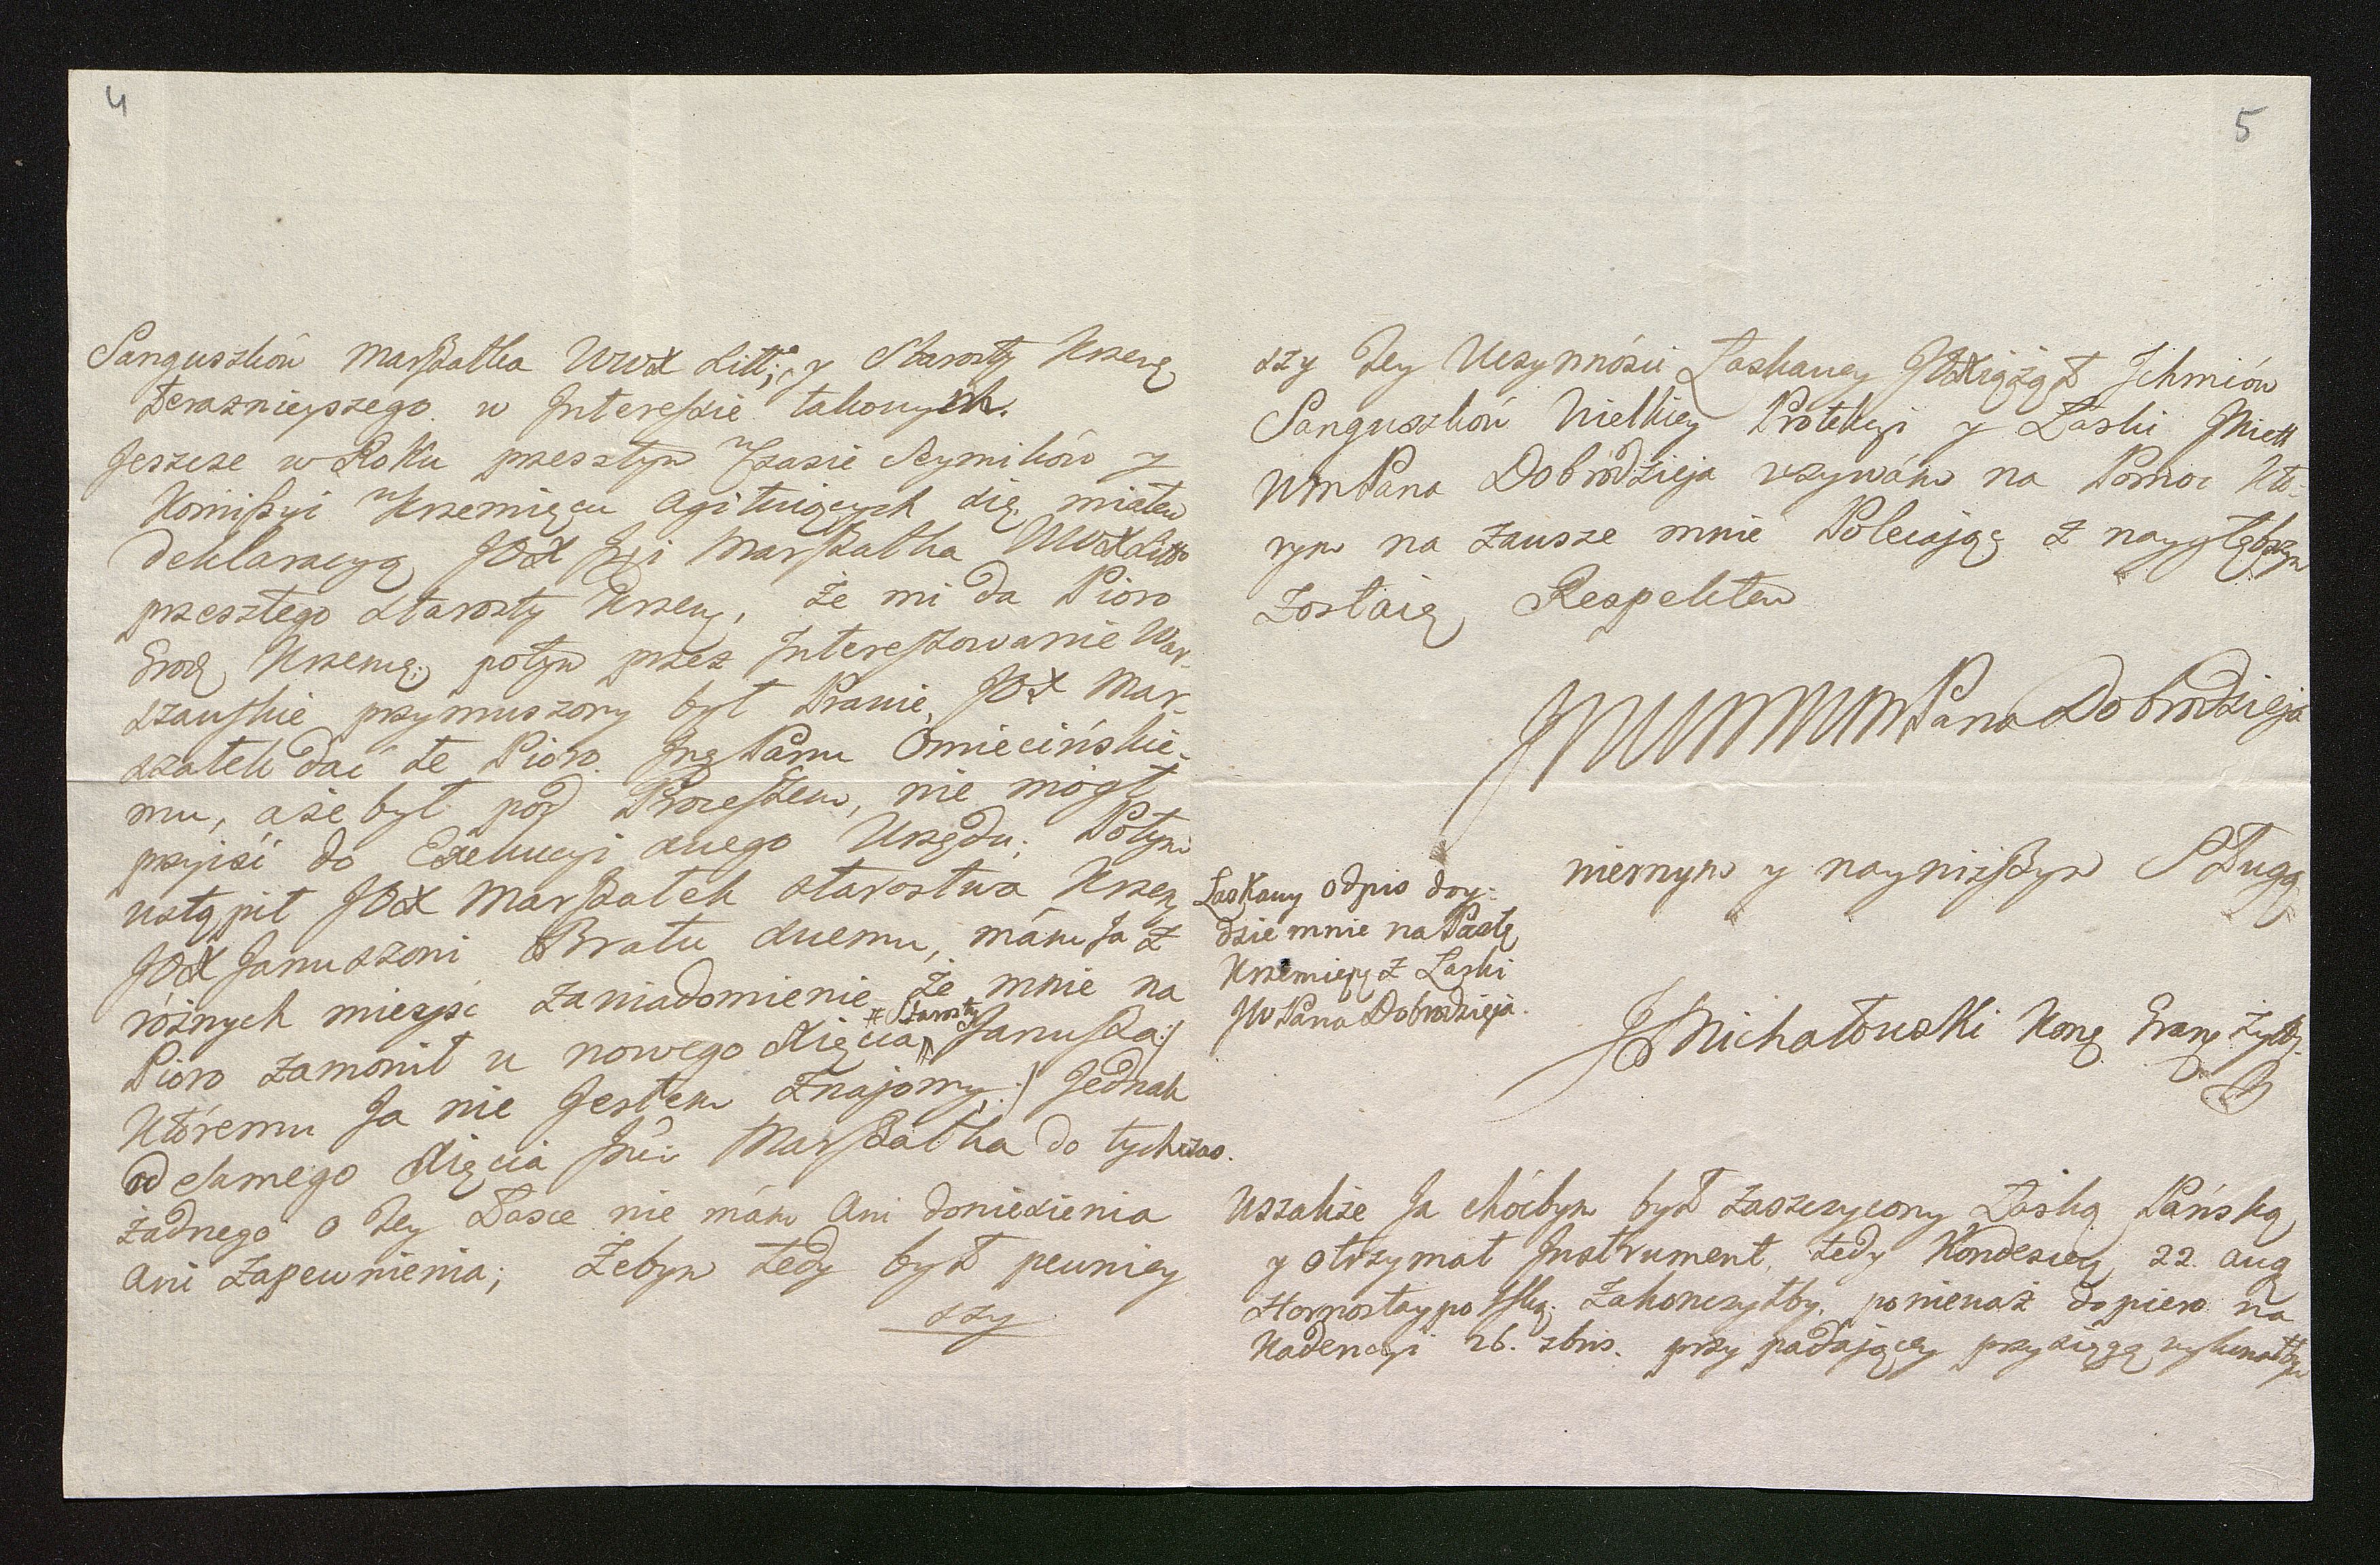 4
Sanguszków Marszałka WWX Litt:, y Starosty Krzeṃ
Terazniejszego w Interessie takowych.
Jeszcze w Roku przeszłym w Czasie Seymików y
Komissyi w Krzemięcu agituiących się miałem
Deklaracyą JOX Jmci Marszałka WWX Litto
przeszłego Starosty Krzem, że mi da Pioro
Grodz Krzemę; potym przez Interessowanie War-
szawskie przymuszony był Prawie JOX Mar-
szałek dać te Pioro Jmę Panu Omiecińskie-
mu, a że był pod Processem, nie mógł
przyjść do Exekucyi swego Urzędu; Potym
ustąpił JOX Marszałek Starostwa Krzem
JOX Januszowi Bratu swemu, mám Ja z
różnych mieysc zawiadomienie że mnie na
Pioro zamowił u nowego Xięcia # Starosty Janusza:/
Któremu Ja nie Jestem znajomy :/ Jednak
od samego Xięcia Jmci Marszałka do tychczas.
żadnego o tey Łasce nie mám ani doniesienia
ani zapewnienia; Żebym tedy był pewniey
szy
5
szy tey Uczynnósci Łaskawey JOXiążąt Ichmiów
Sanguszków Wielkiey Protekcyi y Łaski JWiell
WmPana Dobrodzieja wzywám na Pomoc Kto-
rym na zawsze mnie Polecając z naygłębszym
zostaię Respektem
JWWMWMPana Dobrodzieja
wiernym y nayniższym Sługą
Łaskawy odpis doy-
dzie mnie na Pocztę
Krzemięcę z Łaski
JWPana Dobrodzieja.
JMichałowski Komę Graṇ Żytt.
Wszakże Ja chócbym był zaszczycony Łaską Pańską
y otrzymał Instrument, tedy Kondesceṇ 22. Aug
Hornostaypolską. Zakonczyłby, ponieważ dopiero na
Kadencyi 26. zbris. przypadającey przysięgę wykonałbym